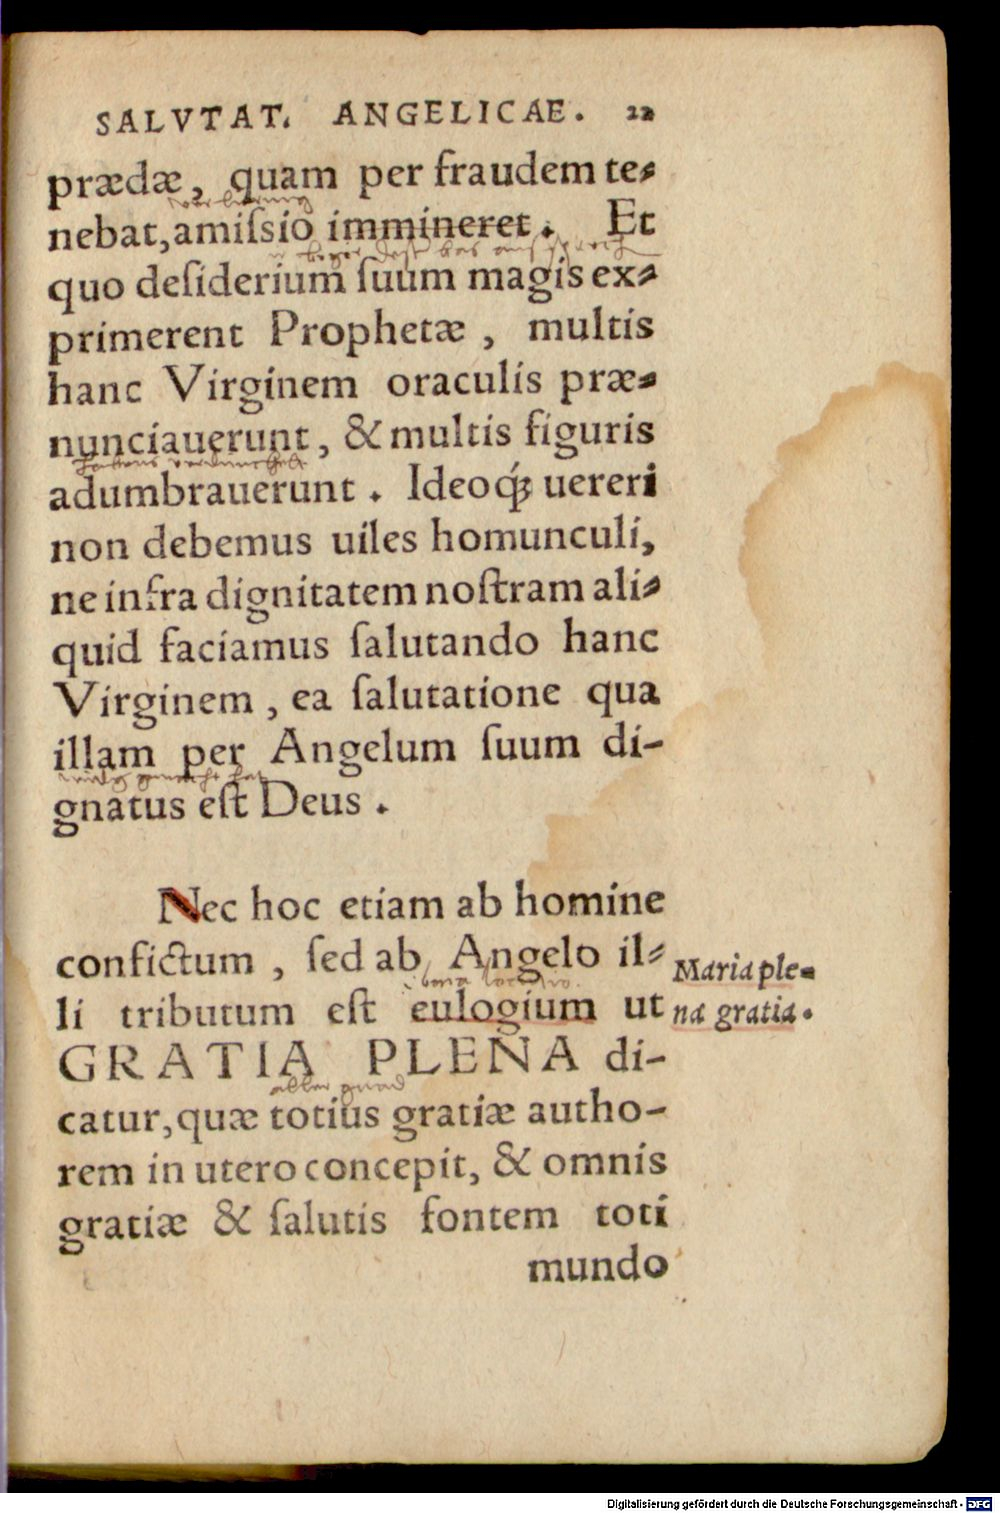 SALVTAT. ANGELICAE. 22
prædæ, quam per fraudem te⸗
nebat, amiſsio immineret. Et
quo deſiderium ſuum magis ex⸗
primerent Prophetæ, multis
hanc Virginem oraculis præ⸗
nunciauerunt, & multis figuris
adumbrauerunt. Ideoq́ꝫ uereri
non debemus uiles homunculi,
ne infra dignitatem noſtram ali⸗
quid faciamus ſalutando hanc
Virginem, ea ſalutatione qua
illam per Angelum ſuum di-
gnatus eſt Deus.
Nec hoc etiam ab homine
confictum, ſed ab Angelo il⸗
li tributum eſt eulogium ut
GRATIA PLENA di-
catur, quæ totius gratiæ autho-
rem in utero concepit, & omnis
gratiæ & ſalutis fontem toti
mundo
Maria ple⸗
na gratia.
Digitalisierung gefördert durch die Deutsche Forschungsgemeinschaft - DFG